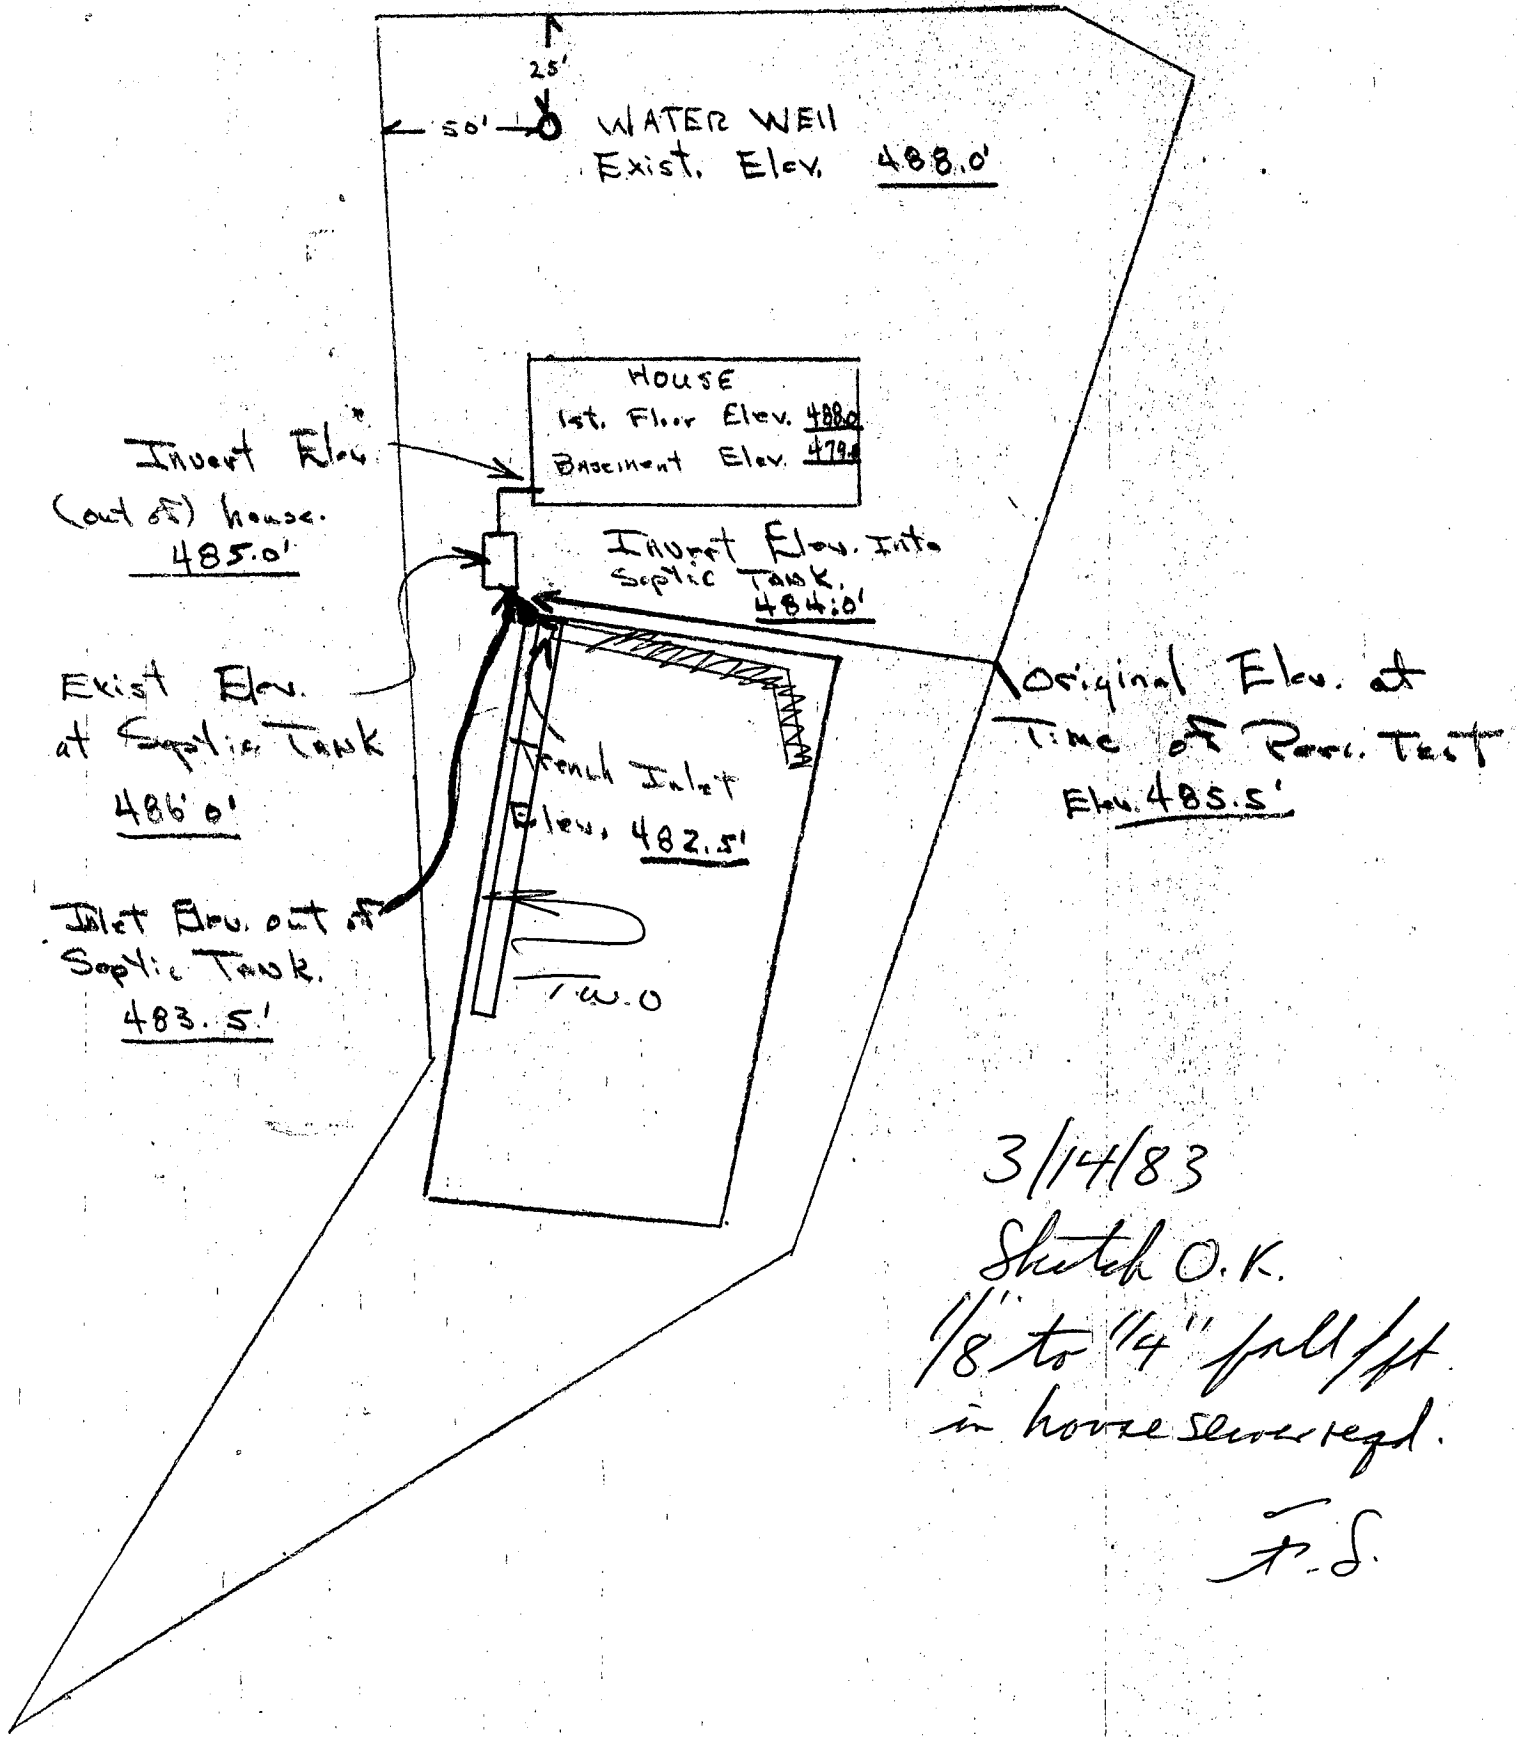 25'
50'
WATER WEll
Exist. Elev. 488.0'
HOUSE
1st. Floor Elev. 488.0
Basement Elev. 479.0
Invert Elev.
(out of) house.
485.0'
Invert Elev. Into
Septic TANK.
484.0'
Exist Elev.
at Septic TANK
486.0'
Original Elev. at
Time of Perc. Test
Elev. 485.5'
Trench Inlet
Elev. 482.5'
Inlet Elev. out of
Septic TANK.
483.5'
3/14/83
Sketch O.K.
1/8" to 1/4" fall/ft.
in house sewer reqd.